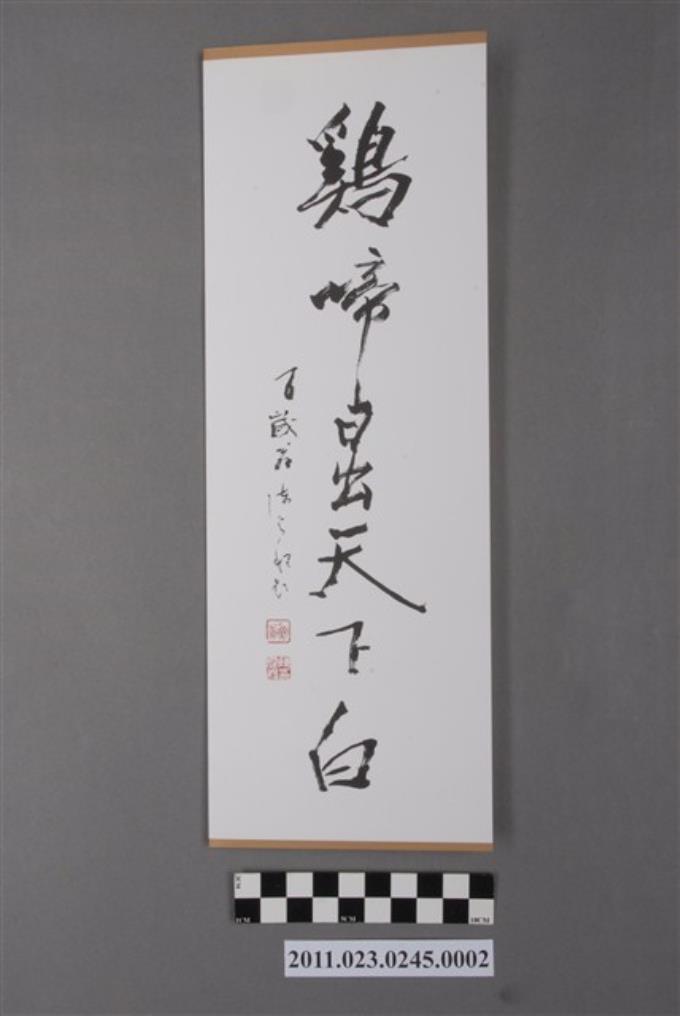 鷄啼日出天下白
百歲翁
5CM
10CM
2011.023.0245.0002